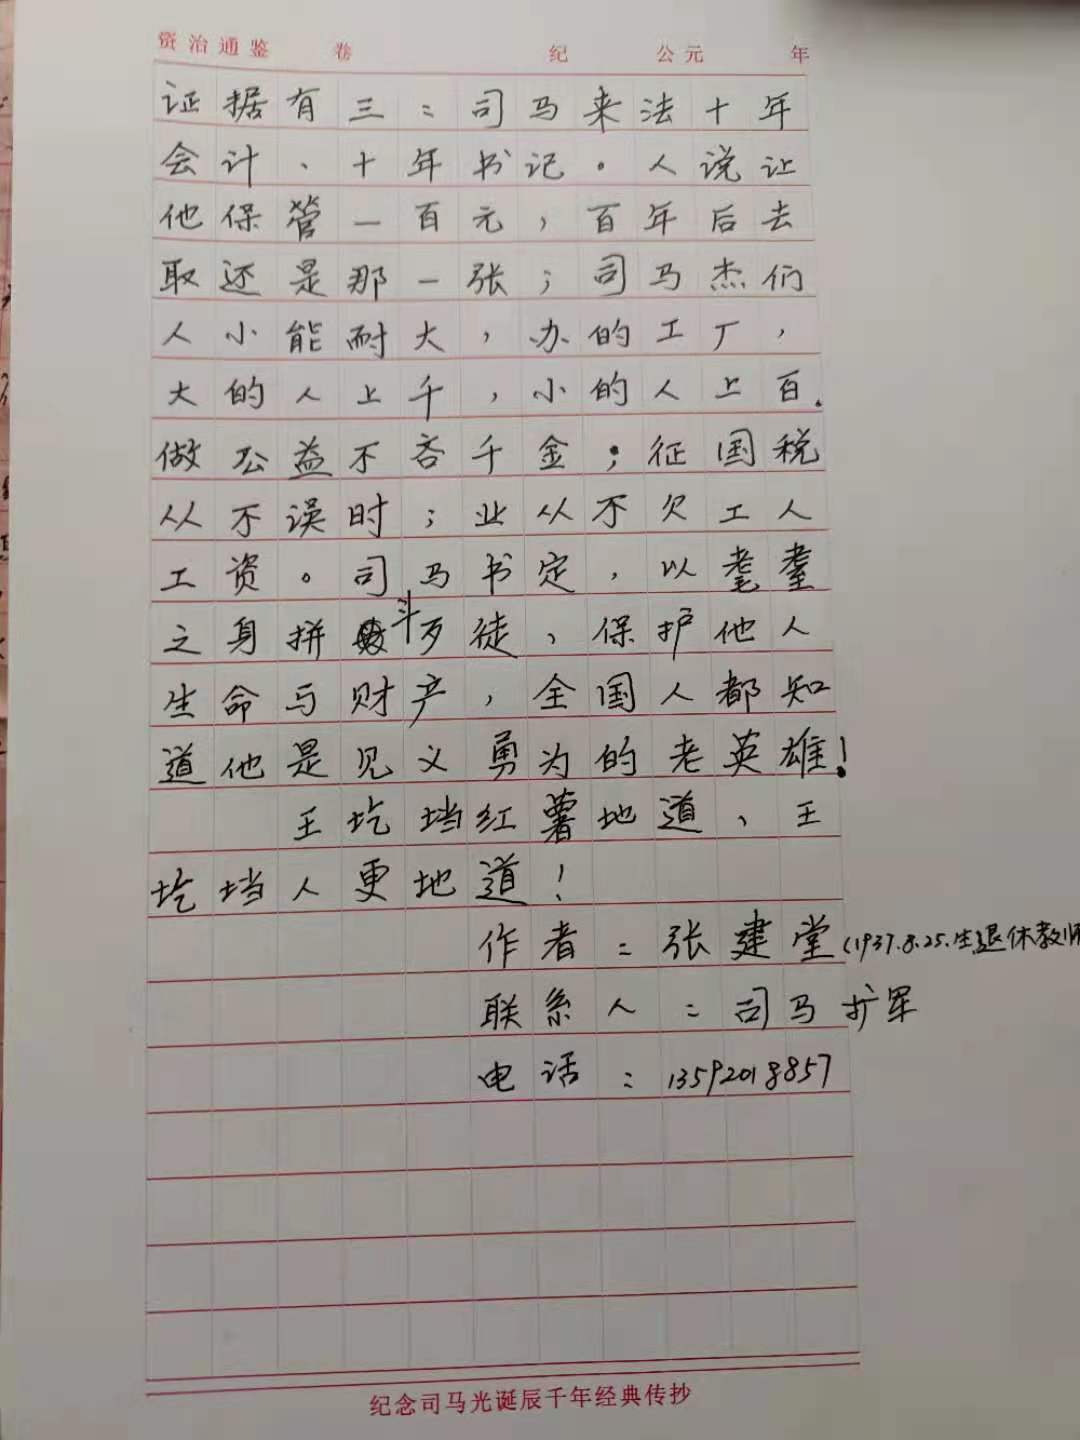 资治通鉴 卷 纪 公元 年
证据有三：司马来法十年
会计、十年书记。人说让
他保管一百元，百年后去
取还是那一张；司马杰们
人小能耐大，办的工厂，
大的人上千，小的人上百.
做公益不吝千金；征国税
从不误时；业从不欠工人
工资。司马书定，以耄耋
之身拼斗歹徒、保护他人
生命与财产，全国人都知
道他是见义勇为的老英雄！
王圪垱红薯地道、王
圪垱人更地道！
作者：张建堂（1937.8.25.生退休教师
联系人：司马扩军
电话：13592018857
纪念司马光诞辰千年经典传抄